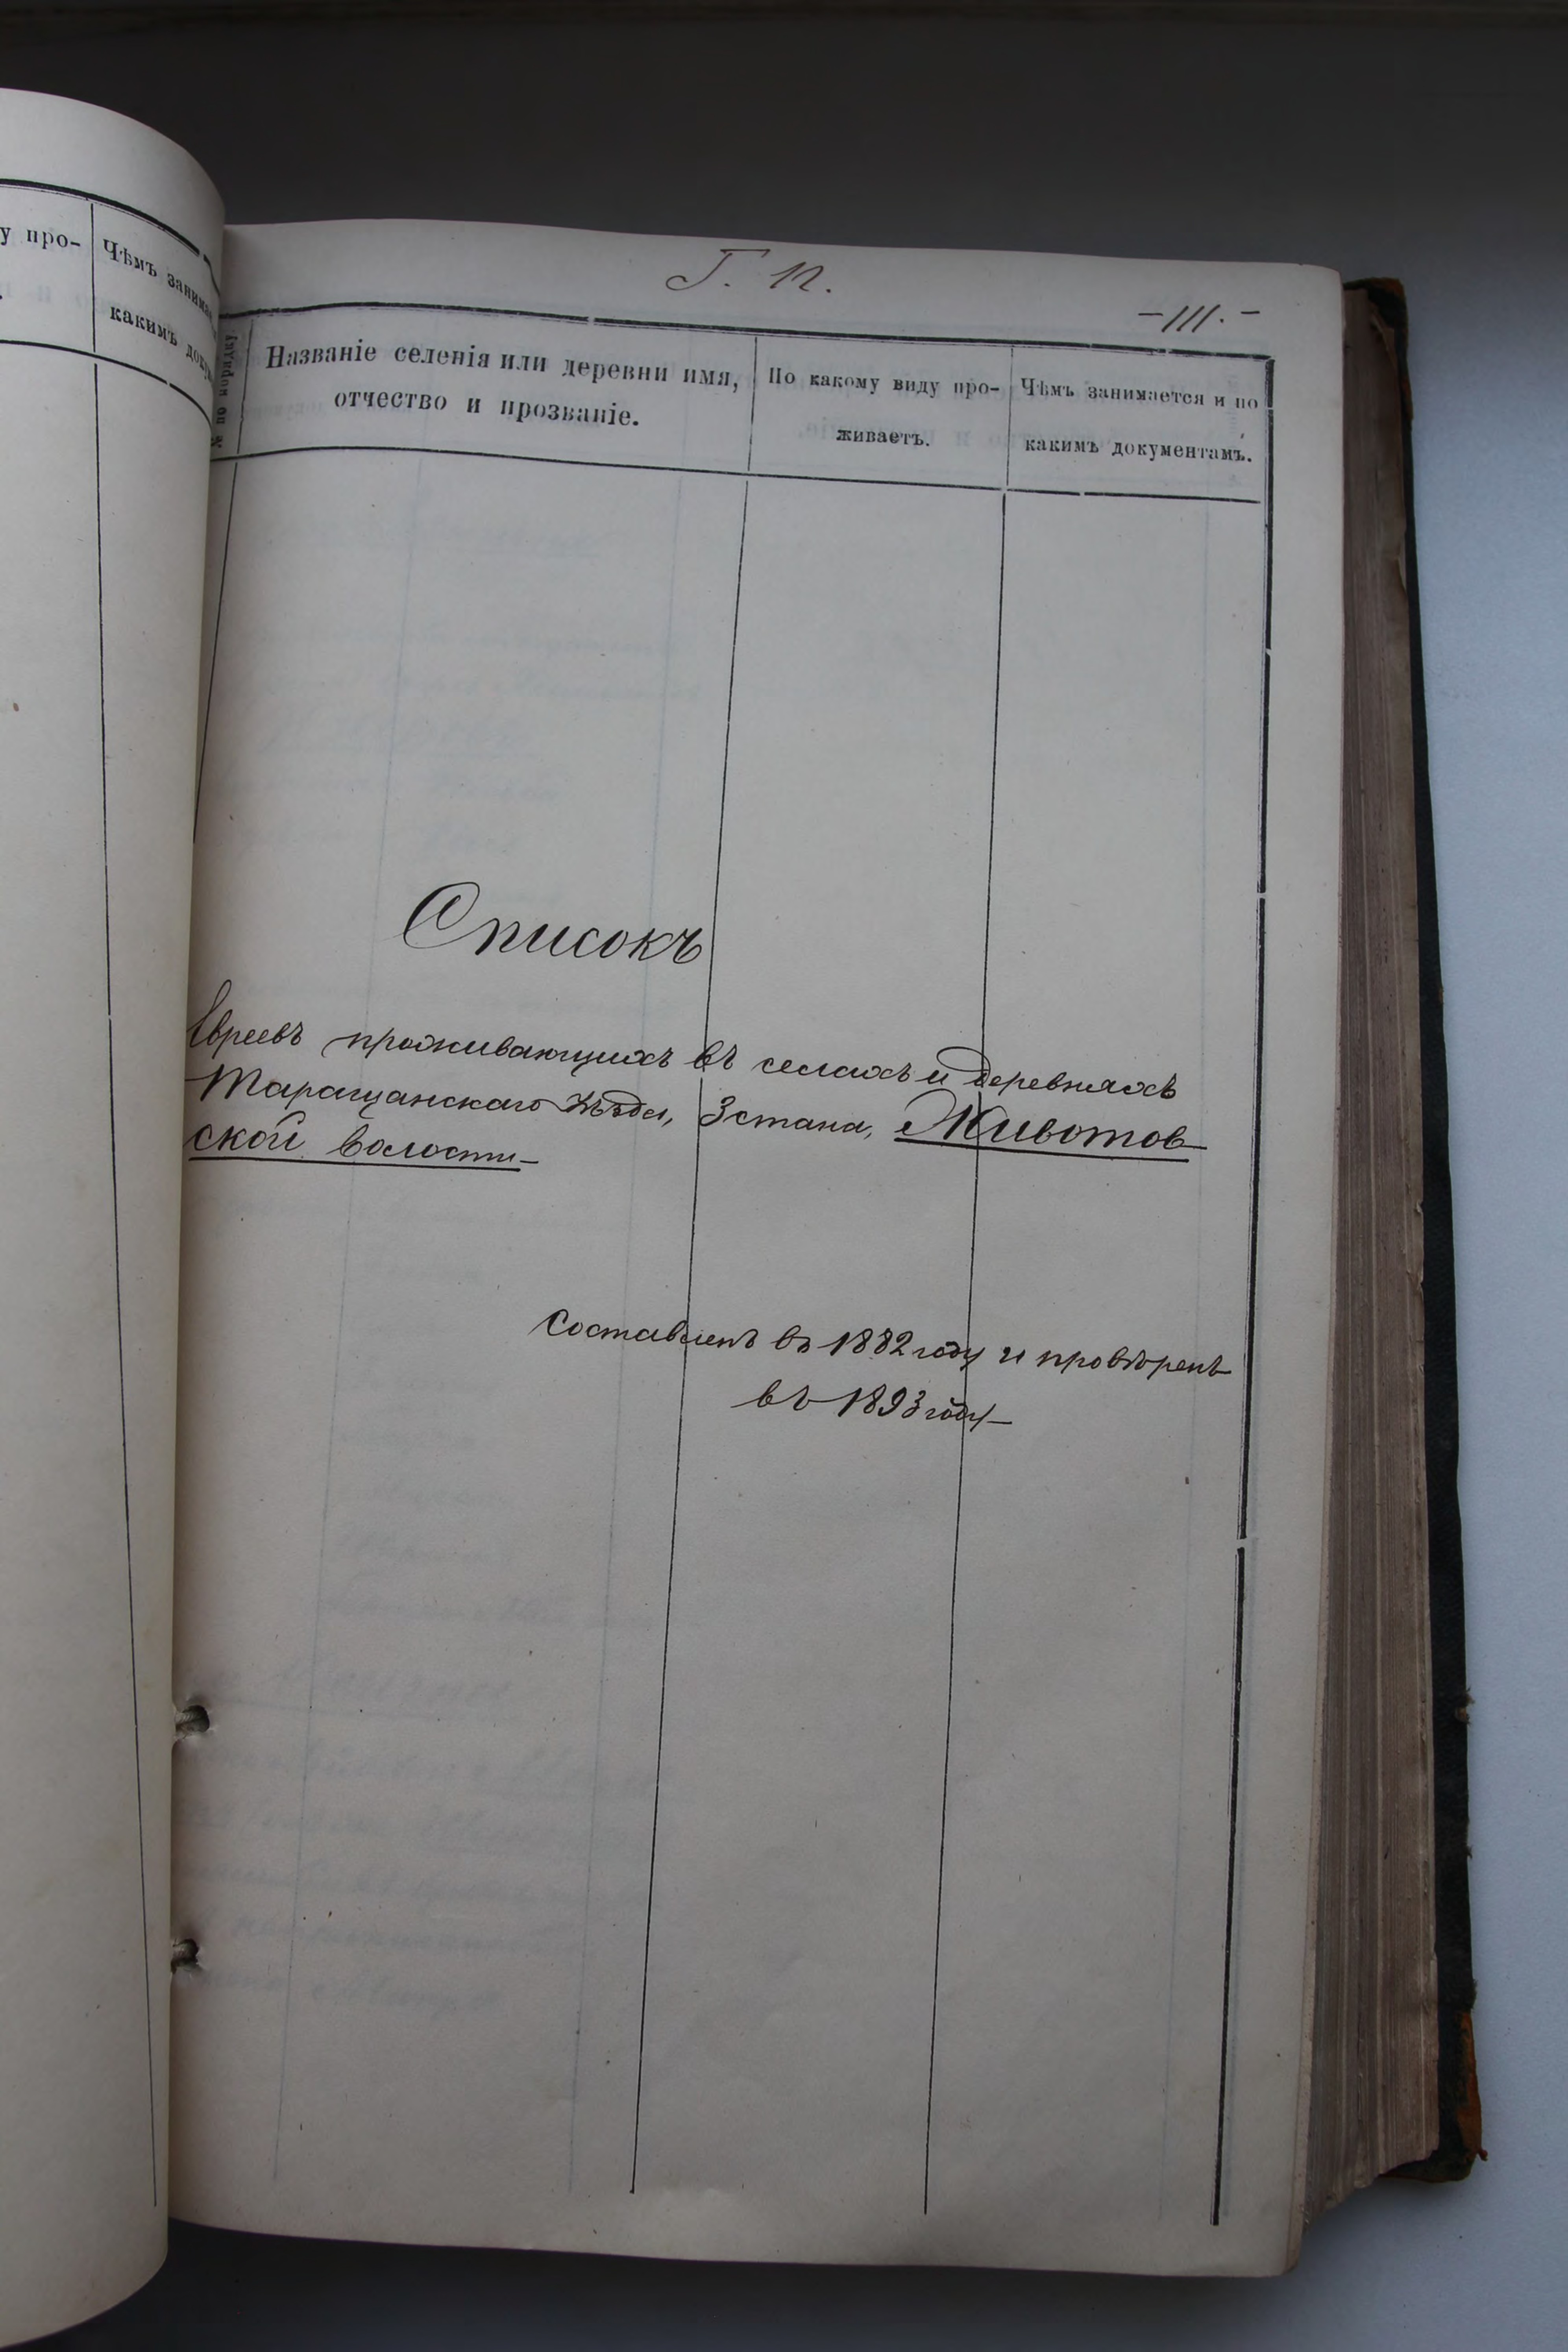 у про-
Чѣмъ заним
какимъ доку
Г. П.
-111.-
№ по порядку
Названіе селенія или деревни имя,
отчество и прозваніе.
По какому виду про-
живаетъ.
Чѣмъ занимается и по
какимъ документамъ.
Списокъ
Евреевъ проживающихъ въ селахъ и деревняхъ
Таращанскаго уѣзда, 3 стана, Животов-
ской волости-
Составленъ въ 1882 году и провѣренъ
въ 1893 году-